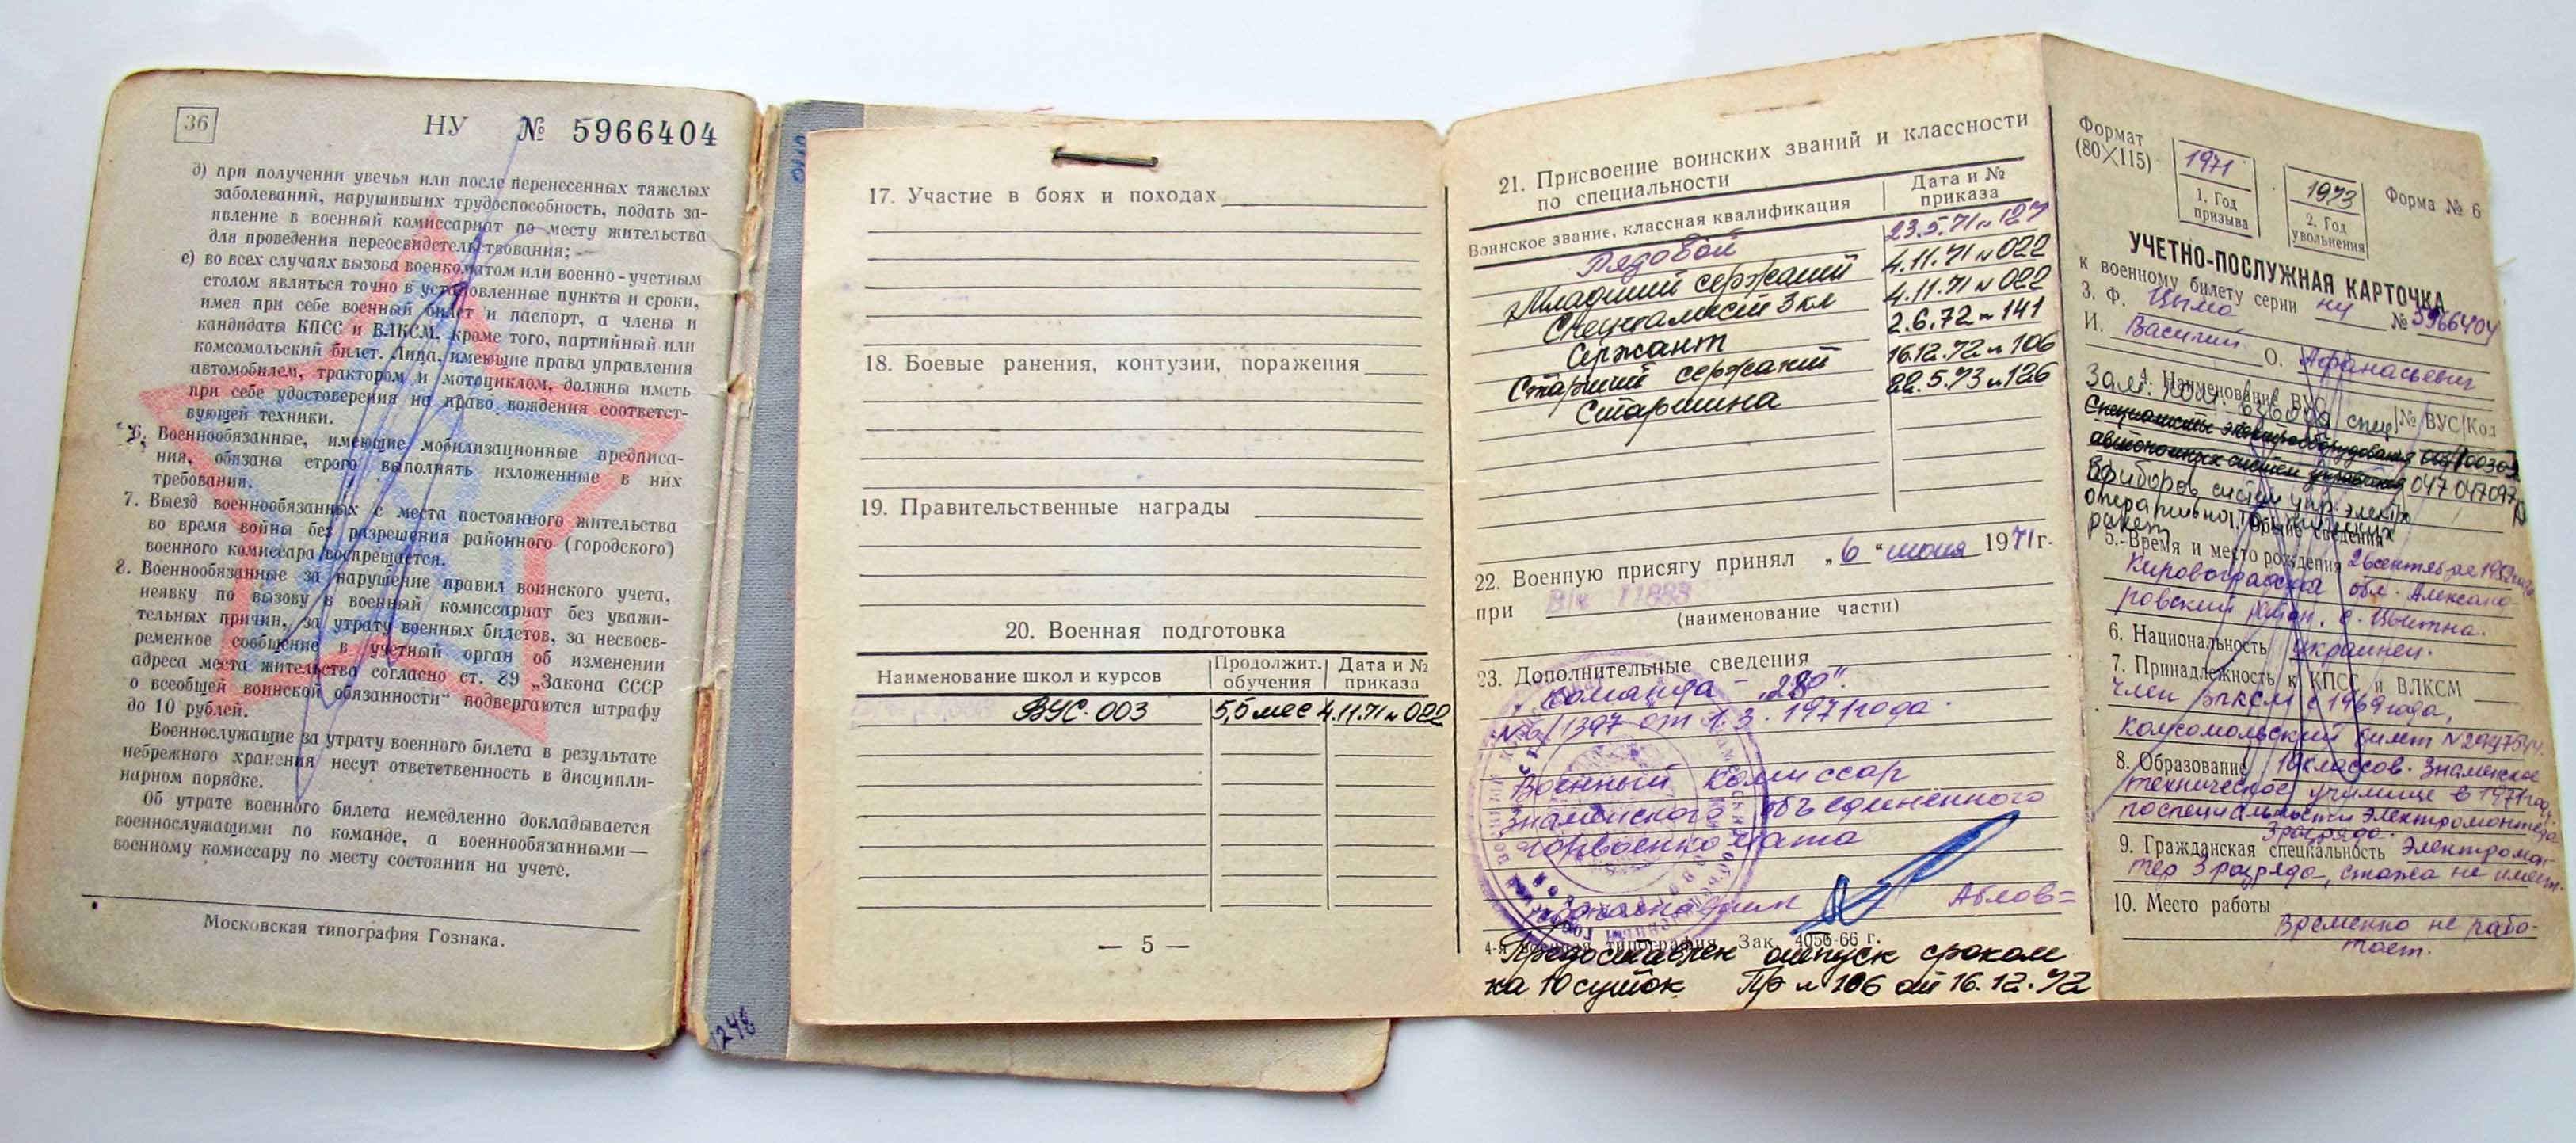 36
НУ № 5966404
д) при получении увечья или после перенесенных тяжелых
заболеваний, нарушивших трудоспособность, подать за-
явление в военный комиссариат по месту жительства
для проведения переосвидетельствования;
е) во всех случаях вызова военкоматом или военно-учетным
столом являться точно в установленные пункты и сроки,
имея при себе военный билет и паспорт, а члены и
кандидаты КПСС и ВЛКСМ, кроме того, партийный или
комсомольский билет. Лица, имеющие права управления
автомобилем, трактором и мотоциклом, должны иметь
при себе удостоверения на право вождения соответст-
вующей техники.
6. Военнообязанные, имеющие мобилизационные предписа-
ния, обязаны строго выполнять изложенные в них
требования.
7. Выезд военнообязанных с места постоянного жительства
во время войны без разрешения районного (городского)
военного комиссара воспрещается.
8. Военнообязанные за нарушение правил воинского учета,
неявку по вызову в военный комиссариат без уважи-
тельных причин, за утрату военных билетов, за несвоев-
ременное сообщение в учетный орган об изменении
адреса места жительства согласно ст. 89 „Закона СССР
о всеобщей воинской обязанности" подвергаются штрафу
до 10 рублей.
Военнослужащие за утрату военного билета в результате
небрежного хранения несут ответственность в дисципли-
нарном порядке.
Об утрате военного билета немедленно докладывается
военнослужащими по команде, а военнообязанными—
военному комиссару по месту состояния на учете.
Московская типография Гознака.
1248
17. Участие в боях и походах
18. Боевые ранения, контузии, поражения
19. Правительственные награды
20. Военная подготовка
Наименование школ и курсов
Продолжит. обучения
Дата и № приказа
ВУС-003 5,5 мес 4.11.71 N 022
— 5 —
21. Присвоение воинских званий и классности
по специальности
Воинское звание, классная квалификация
Дата и № приказа
Рядовой 23.5.71 N 127
Младший сержант 4.11.71 N 022
Специалист 3 кл 4.11.71 N 022
Сержант 2.6.72 N 141
Старший сержант 16.12.72 N 106
Старшина 22.5.73 N 126
22. Военную присягу принял „6" июня 1971 г.
при В/ч 11883
(наименование части)
23. Дополнительные сведения
команда - „280".
N6/1397 от 1.3.1971 года.
Военный комиссар
Знаменского объединенного
горвоенкомата
Аблов=
4-я военная типография Зак. 4056-66 г.
Предоставлен отпуск сроком
на 10 суток Пр N 106 от 16.12.72
Формат
(80×115)
1971
1. Год
призыва
1973
2. Год
увольнения
Форма № 6
УЧЕТНО-ПОСЛУЖНАЯ КАРТОЧКА
к военному билету серии НУ № 5966404
3. Ф. Цыма
И. Василий О. Афанасьевич
4. Наименование ВУС
№ ВУС Код
Специалисты электрооборудования
автономных систем управления 047 047097
приборов систем упр. электр
оперативно-тактических
ракет
1. Общие сведения
5. Время и место рождения 26 сентября 1952 года
Кировоградская обл. Александ-
ровский район, с. Цвитна.
6. Национальность украинец.
7. Принадлежность к КПСС и ВЛКСМ
член ВЛКСМ с 1969 года,
комсомольский билет
8. Образование 10 классов. Знаменское
техническое училище в 1971 году
по специальности электромонтера
3 разряда.
9. Гражданская специальность Электромон-
тер 3 разряда, стажа не имеет.
10. Место работы
Временно не рабо-
тает.